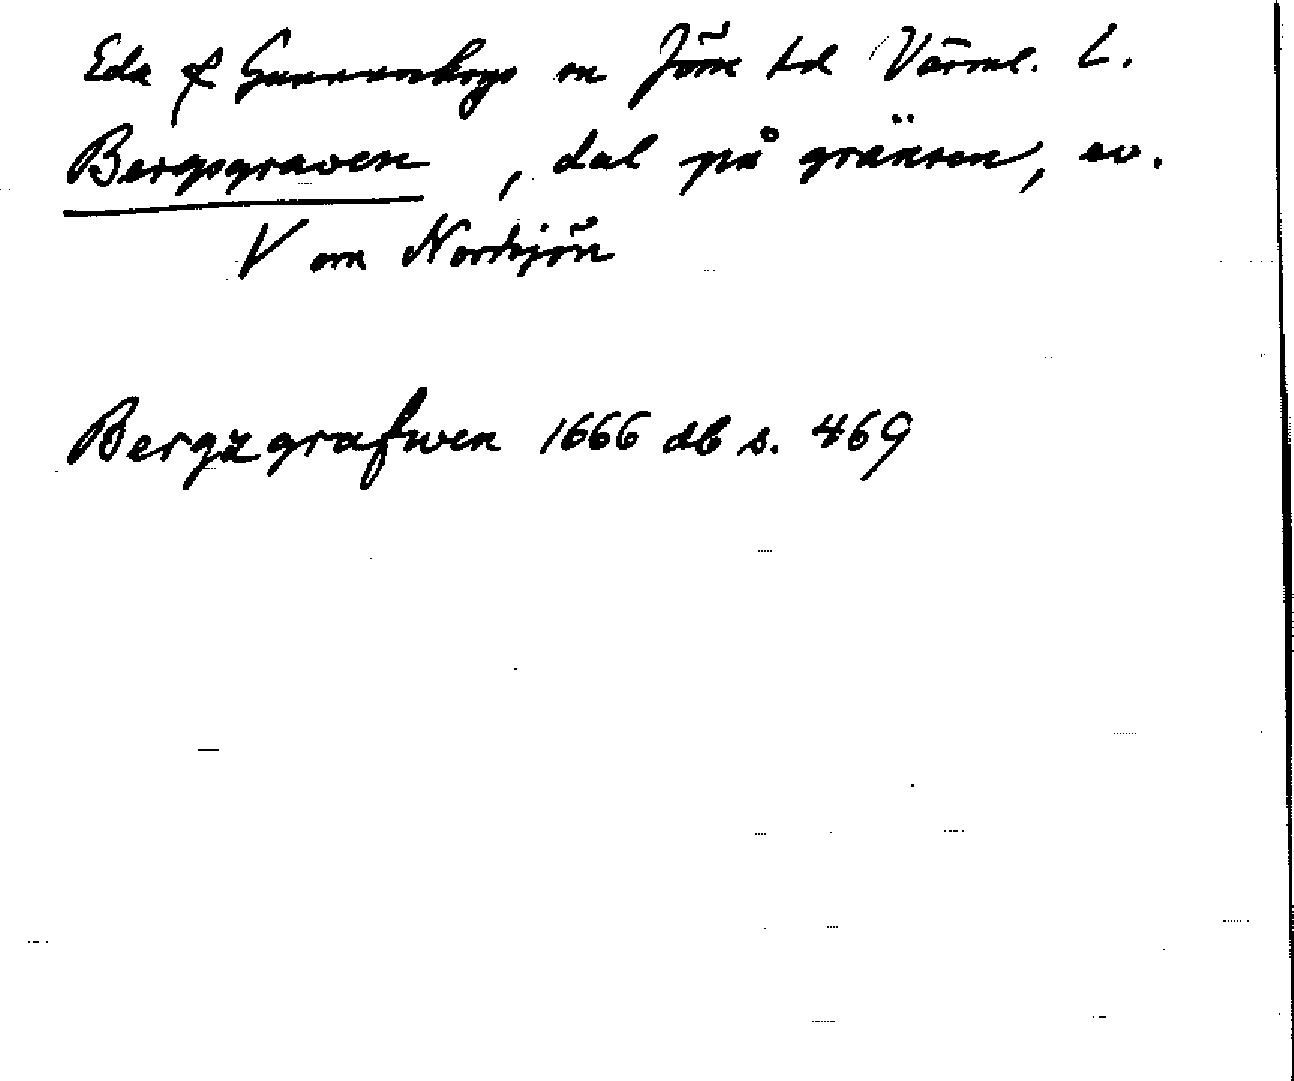 Eda & Gunnarskogs sn Jösse hd Värml. L.
Bergsgraven, dal på gränsen, ev.
V om Nordsjön
Bergzgrafwen 1666 db s. 469